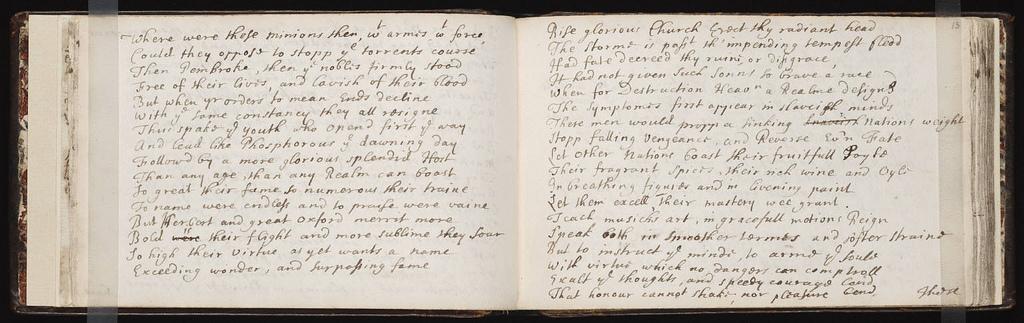 Where were these minions then, wt armis wt force
Could they oppose to stopp ye torrents course
Then Pembroke, then ye nobles firmly stood
Free of their lives, and lavish of their blood
But when yr orders to mean Ends decline
With ye same constancy they all resigne
Thus spake ye youth who opend first ye way
And lead like Phosphorous ye dawning day
Follow'd by a more glorious splendid Host
Than any age, than any Realm can boast
So great their fame, so numerous their traine
To name were endless and to praise were vaine
But Herbert and great Oxford merrit more
Bold were their flight and more sublime they soar
So high their virtue as yet wants a name
Exceeding wonder, and surpassing fame
15
Rise glorious Church Erect thy radiant head
The storme is past th' impending tempest fled
Had fate decreed thy ruine or disgrace
It had not given such sonns so brave a race
When for Destruction Heavn a Realme designs
The symptomes first appear in slaveish minds
These men would propp a sinking Nations weight
Stopp falling Vengeance, and Reverse Ev'n Fate
Let other Nations boast their fruitfull soyle
Their fragrant spices, their rich wine and oyle
In breathing figures and in liveing paint
Let them excell, their mastery wee grant
Teach musicks art, in gracefull motions Reign
Speak both in smoother termes and softer straine
But to instruct ye minds to arme ye soule
With virtue which no dangers can comptroll
Exalt ye thoughts, and speedy courage lend
That honour cannot shake nor pleasure bend
These